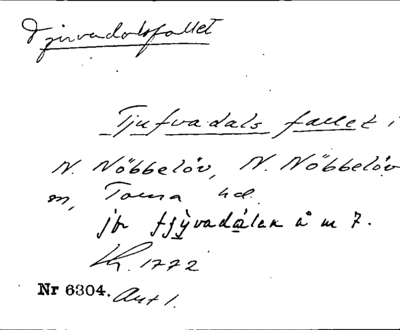 Tjuvadalsfallet
Tjufvadals fallet i
N. Nöbbelöv, N. Nöbbelöv
sn, Torna hd.
jfr tjỳvadálen å nr 7.
Lh. 1772
Nr 6304. Avt 1.